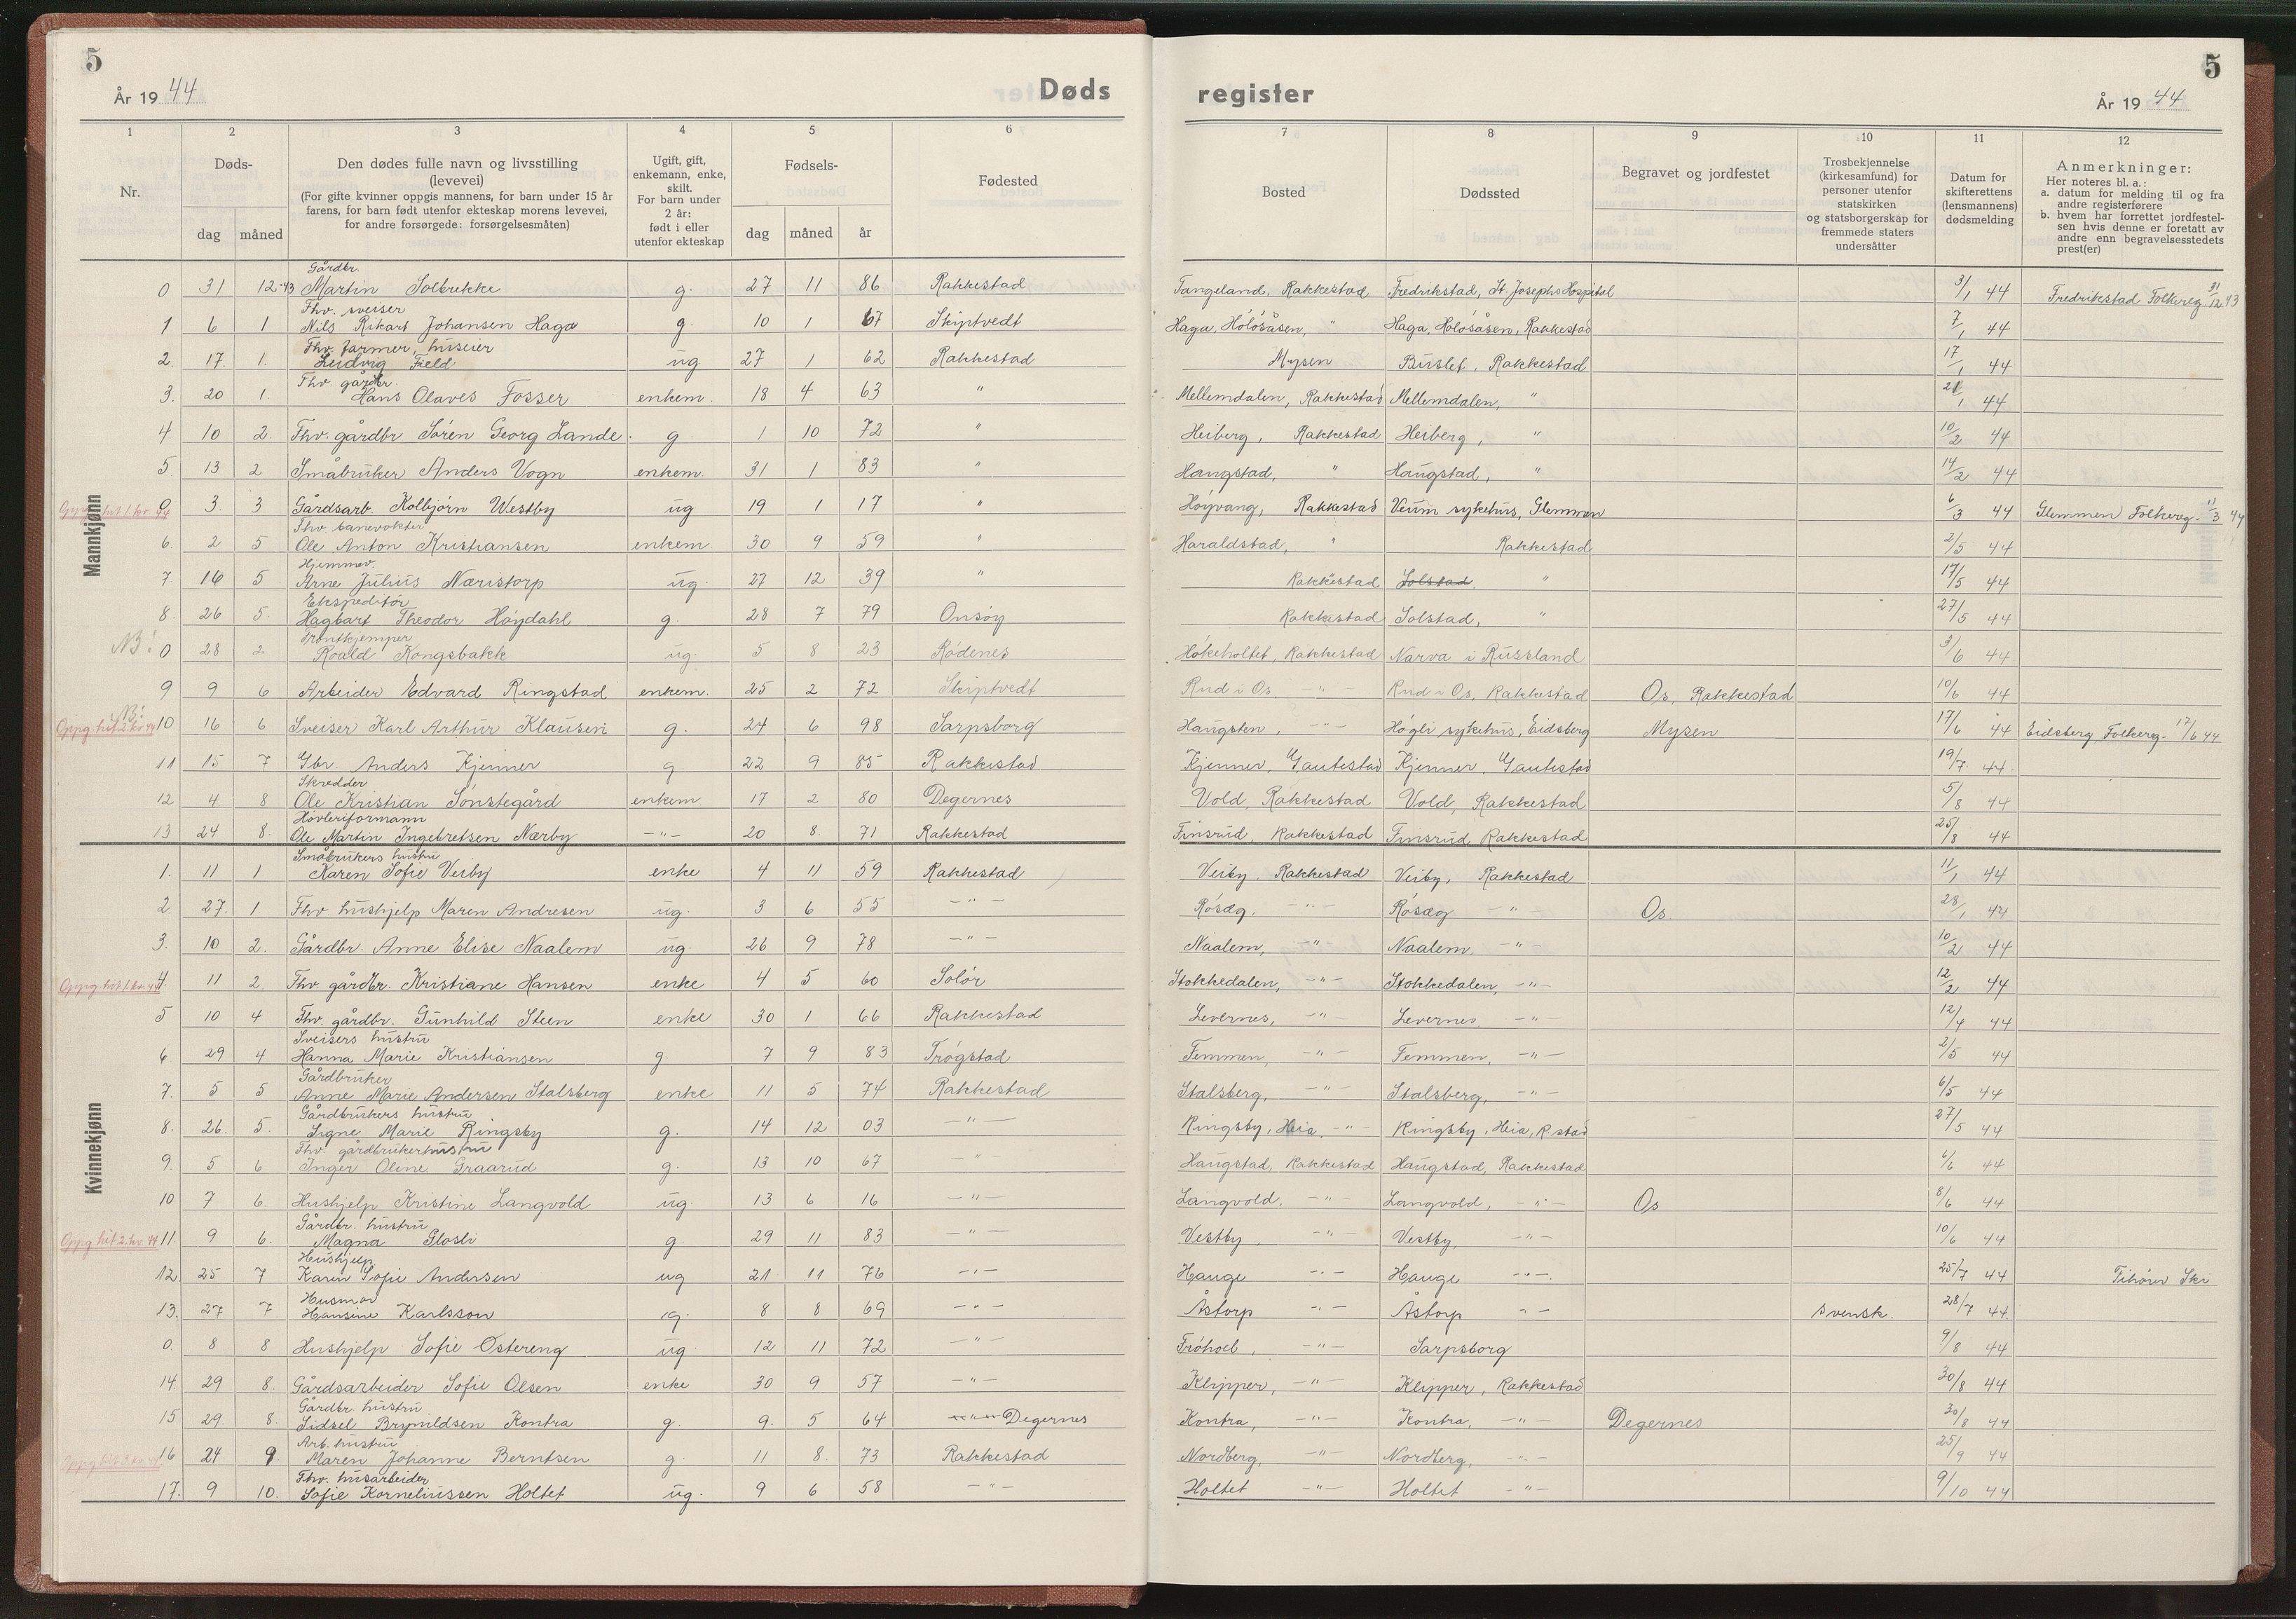 5
År 19 44
Døds
register
5
År 19 44
1 2 3 4 5 6 7 8 9 10 11 12
Nr.
Døds-
dag måned
Den dødes fulle navn og livsstilling
(levevei)
(For gifte kvinner oppgis mannens, for barn under 15 år
farens, for barn født utenfor ekteskap morens levevei,
for andre forsørgede: forsørgelsesmåten)
Ugift, gift,
enkemann, enke,
skilt.
For barn under
2 år:
født i eller
utenfor ekteskap
Fødsels-
dag måned år
Fødested
Bosted
Dødssted
Begravet og jordfestet
Trosbekjennelse
(kirkesamfund) for
personer utenfor
statskirken
og statsborgerskap for
fremmede staters
undersåtter
Datum for
skifterettens
(lensmannens)
dødsmelding
Anmerkninger:
Her noteres bl. a.:
a. datum for melding til og fra
andre registerførere
b. hvem har forrettet jordfestel-
sen hvis denne er foretatt av
andre enn begravelsesstedets
prest(er)
Mannkjønn
Gårdbr.
0 31 12-43 Martin Solbrekke g. 27 11 86 Rakkestad Tangeland, Rakkestad Fredrikstad, St. Josephs Hospital 3/1 44 Fredrikstad Folkereg 31/12 43
Fhv. sveiser
1 6 1 Nils Rikart Johansen Haga g. 10 1 67 Skiptvedt Haga, Holøsåsen, " Haga, Holøsåsen, Rakkestad 7/1 44
Fhv. farmer, huseier
2. 17. 1. Ludvig Field ug 27 1 62 Rakkestad Mysen Buslet, Rakkestad 17/1 44
Fhv. gårdbr.
3. 20 1. Hans Olaves Fosser enkem. 18 4 63 " Mellemdalen, Rakkestad Mellemdalen, " 21/1 44
4 10 2. Fhv. gårdbr Søren Georg Lande. g. 1 10 72 " Heiberg, Rakkestad Heiberg, " 10/2 44
5. 13 2 Småbruker Anders Vogn enkem. 31 1 83 " Haugstad, " Haugstad, " 14/2 44
Oppg. hit 1. kv. 44 0 3. 3 Gårdsarb. Kolbjørn Westby ug 19 1 17 " Høyvang, Rakkestad Veum sykehus, Glemmen 6/3 44 Glemmen Folkereg. 11/3 44
Fhv. banevokter
6. 2 5 Ole Anton Kristiansen enkem. 30 9 59 " Haraldstad, " Rakkestad 2/5 44
Hjemmev.
7 16 5 Arne Julius Næristorp ug. 27 12 39 " Rakkestad Solstad " 17/5 44
Ekspeditør
8. 26 5. Hagbart Theodor Høydahl g. 28 7 79 Onsøy Rakkestad Solstad, " 27/5 44
Frontkjemper
NB! 0 28 2 Roald Kongsbakk ug. 5 8 23 Rødenes Høkeholtet, Rakkestad Narva i Russland 3/6 44
9 9 6 Arbeider Edvard Ringstad enkem. 25 2 72 Skiptvedt Rud i Os, -"- Rud i Os, Rakkestad Os, Rakkestad 10/6 44
NB!
Oppg. hit 2. kv 44 10 16 6 Sveiser Karl Arthur Klausen g. 24 6 98 Sarpsborg Haugsten, -"- Høgli sykehus, Eidsberg Mysen 17/6 44 Eidsberg Folkereg. 17/6 44
11 15 7 Gbr. Anders Kjenner g. 22 9 85 Rakkestad Kjenner, Gautestad Kjenner, Gautestad 19/7. 44.
Skredder
12 4 8 Ole Kristian Sønstegård enkem. 17 2 80 Degernes Vold, Rakkestad Vold, Rakkestad 5/8 44
Høvleriformann
13 24 8. Ole Martin Ingebretsen Nærby -"- 20 8. 71 Rakkestad Finsrud, Rakkestad Finsrud Rakkestad 25/8 44
Kvinnekjønn
Småbrukers hustru
1. 11 1. Karen Sofie Veiby enke 4 11 59 Rakkestad Veiby, Rakkestad Veiby, Rakkestad 11/1 44
2. 27. 1. Fhv. hushjelp Maren Andresen ug. 3 6 55 -"- Røsæg, -"- Røsæg -"- Os 28/1 44
3. 10 2. Gårdbr. Anne Elise Naalem ug. 26 9 78 -"- Naalem, -"- Naalem, -"- 10/2 44
Oppg. hit 1. kv. 44 4. 11 2. Fhv. gårdbr. Kristiane Hansen enke 4 5 60 Solør Stokkedalen, -"- Stokkedalen, -"- 12/2 44
5 10 4 Fhv. gårdbr. Gunhild Steen enke 30 1 66 Rakkestad Levernes, -"- Levernes -"- 12/4 44
Sveisers hustru
6 29 4 Hanna Marie Kristiansen g. 7 9 83 Trøgstad Femmen, -"- Femmen, -"- 2/5 44
Gårdbruker
7. 5 5 Anne Marie Andersen Stalsberg enke 11 5 74 Rakkestad Stalsberg, -"- Stalsberg, -"- 6/5 44
Gårdbrukers hustru
8. 26. 5. Signe Marie Ringsby g. 14 12 03 -"- Ringsby, Heia, -"- Ringsby, Heia, R.stad 27/5 44
Fhv. gårdbrukerhustru
9. 5 6 Inger Oline Graarud g. 13 10 67 -"- Haugstad, Rakkestad Haugstad, Rakkestad 6/6 44
10 7 6. Hushjelp Kristine Langvold ug. 13 6 16 -"- Langvold. -"- Langvold, -"- Os 8/6 44
Gårdbr. hustru
Oppg. hit 2. kv 44 11 9 6. Magna Glosli g. 29 11 83 -"- Vestby, -"- Vestby, -"- 10/6 44
Hushjelp
12. 25 7 Karen Sofie Andersen ug 21 11 76 -"- Hauge -"- Hauge -"-. 25/7 44
Husmor
13. 27 7 Hansine Karlsson g. 8 8 69 -"- Åstorp -"- Åstorp -"- svensk. 28/7 44.
0. 8 8 Hushjelp Sofie Østereng ug 12 11 72 -"- Frøhoel, -"- Sarpsborg 9/8 44
14. 29 8. Gårdsarbeider Sofie Olsen enke 30 9 57 -"- Klipper, -"- Klipper, Rakkestad 30/8 44
Gårdbr. hustru
15 29 8. Sidsel Brynildsen Kontra g. 9. 5 64 Degernes Kontra, -"- Kontra, -"- Degernes 30/8 44
Arb. hustru
16 24 9 Maren Johanne Berntsen g. 11 8. 73 Rakkestad Nordberg, -"- Nordberg, -"- 25/9 44
Fhv. husarbeider
17. 9 10. Sofie Korneliussen Holtet ug. 9 6 58 -"- Holtet -"- Holtet -"- 9/10 44